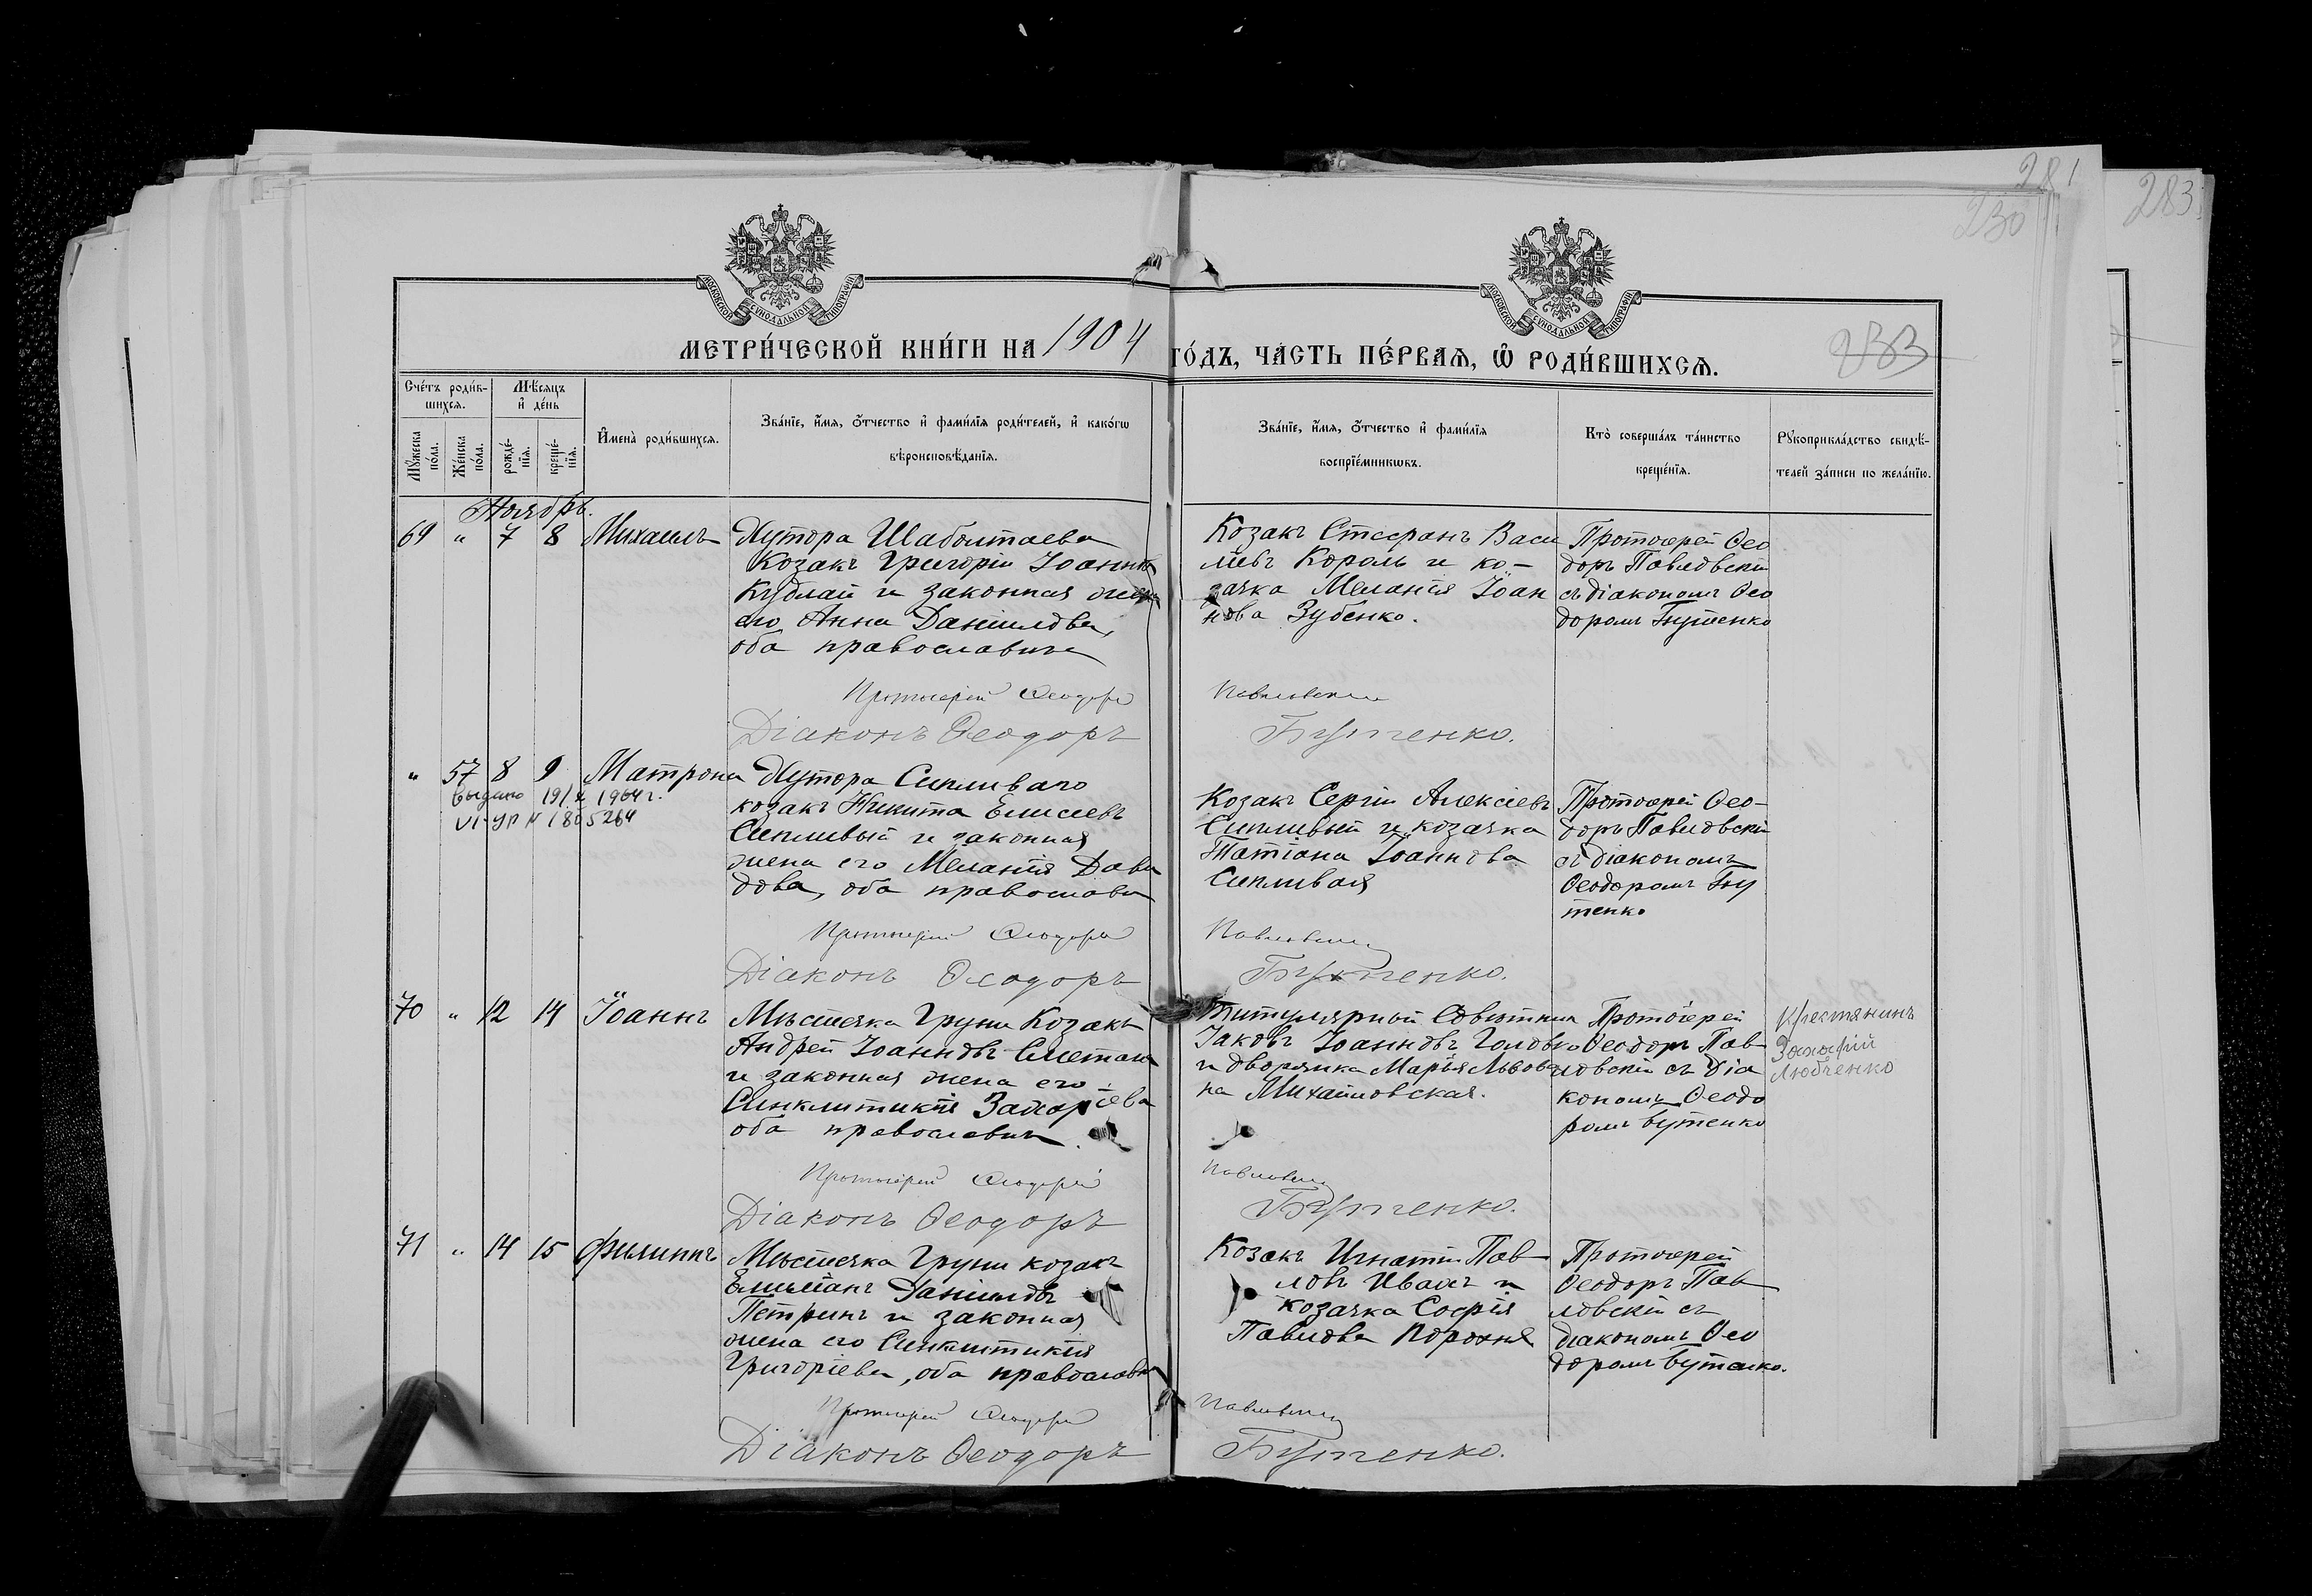 281
230
283
МОСКОВСКОЙ СУНОДАЛЬНОЙ ТИПОГРАФІИ
МОСКОВСКОЙ СУНОДАЛЬНОЙ ТИПОГРАФІИ
МЕТРИ́ЧЕСКОЙ КНИ́ГИ НА 1904 ГО́ДЪ, ЧА́СТЬ ПЕ́РВАЯ, Ѡ҆ РОДИ́ВШИХСѦ.
233
Сче́тъ роди́в-
шихсѧ.
Мѣ́сѧцъ
и҆ де́нь
Мꙋ́жеска по́ла.
Же́нска по́ла.
рожде́-нїѧ.
креще́-нїѧ.
И҆мена̀ роди́вшихсѧ.
Зва́нїе, и҆́мѧ, о҆́тчество и҆ фами́лїѧ роди́телей, и҆ како́гѡ
вѣроисповѣ́данїѧ.
Зва́нїе, и҆́мѧ, о҆́тчество и҆ фами́лїѧ
воспрїе́мникѡвъ.
Кто̀ соверша́лъ та́инство
креще́нїѧ.
Рꙋкоприкла́дство свидѣ́-
телей за́писи по жела́нїю.
Ноябрь.
69 " 7 8 Михаилъ
Хутора Шаболтаева
Козакъ Григорій Іоанновъ
Кублай и законная жена
его Анна Даніилова,
оба православные
Козакъ Стефанъ Васи
льевъ Король и ко-
зачка Меланія Іоан
нова Зубенко.
Протоіерей Ѳео
доръ Павловскій
съ діакономъ Ѳео
доромъ Бутенко
Протоіерей Ѳеодоръ Павловскій
Діаконъ Ѳеодоръ Бутенко.
" 57 8 9 Матрона
Выдано 19/X 1964 г.
VI-УР N 1805264
Хутора Сипливаго
козакъ Никита Елисеевъ
Сипливый и законная
жена его Меланія Дави
дова, оба православны
Козакъ Сергій Алексіевъ
Сипливый и козачка
Татіана Іоаннова
Сипливая
Протоіерей Ѳео-
доръ Павловскій
съ діакономъ
Ѳеодоромъ Бу
тенко
Протоіерей Ѳеодоръ Павловскій
Діаконъ Ѳеодоръ Бутенко.
70 " 12 14 Іоаннъ
Мѣстечка Груни Козакъ
Андрей Іоанновъ Сметана
и законная жена его
Синклитикія Захаріева
оба православны
Титулярный Совѣтникъ
Іаковъ Іоанновъ Головко
и дворянка Марія Львова
на Михайловская.
Протоіерей
Ѳеодоръ Пав
ловскій съ діа
кономъ Ѳеодо
ромъ Бутенко
Крестянинъ
Захарій
Любченко
Протоіерей Ѳеодоръ Павловскій
Діаконъ Ѳеодоръ Бутенко.
71 " 14 15 Филиппъ
Мѣстечка Груни козакъ
Емиліанъ Даніиловъ
Петринъ и законная
жена его Синклитикія
Григоріева, оба православн
Козакъ Игнатій Пав
ловъ Ивахъ и
козачка Софія
Павлова Порохня
Протоіерей
Ѳеодоръ Пав
ловскій съ
діакономъ Ѳео
доромъ Бутенко.
Протоіерей Ѳеодоръ Павловскій
Діаконъ Ѳеодоръ Бутенко.